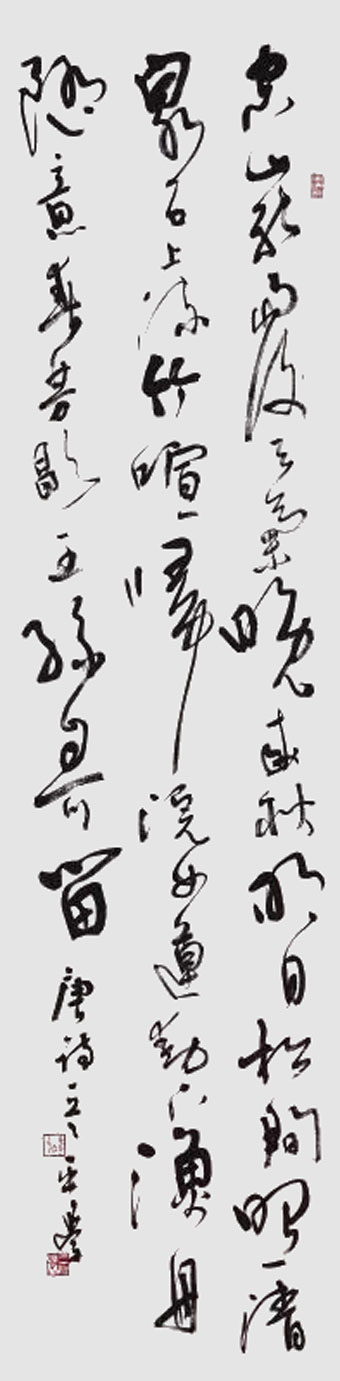 空山新雨後天氣晚來秋明月松間照清
泉石上流竹喧歸浣女蓮動下漁舟
隨意春芳歇王孫自可留 唐詩